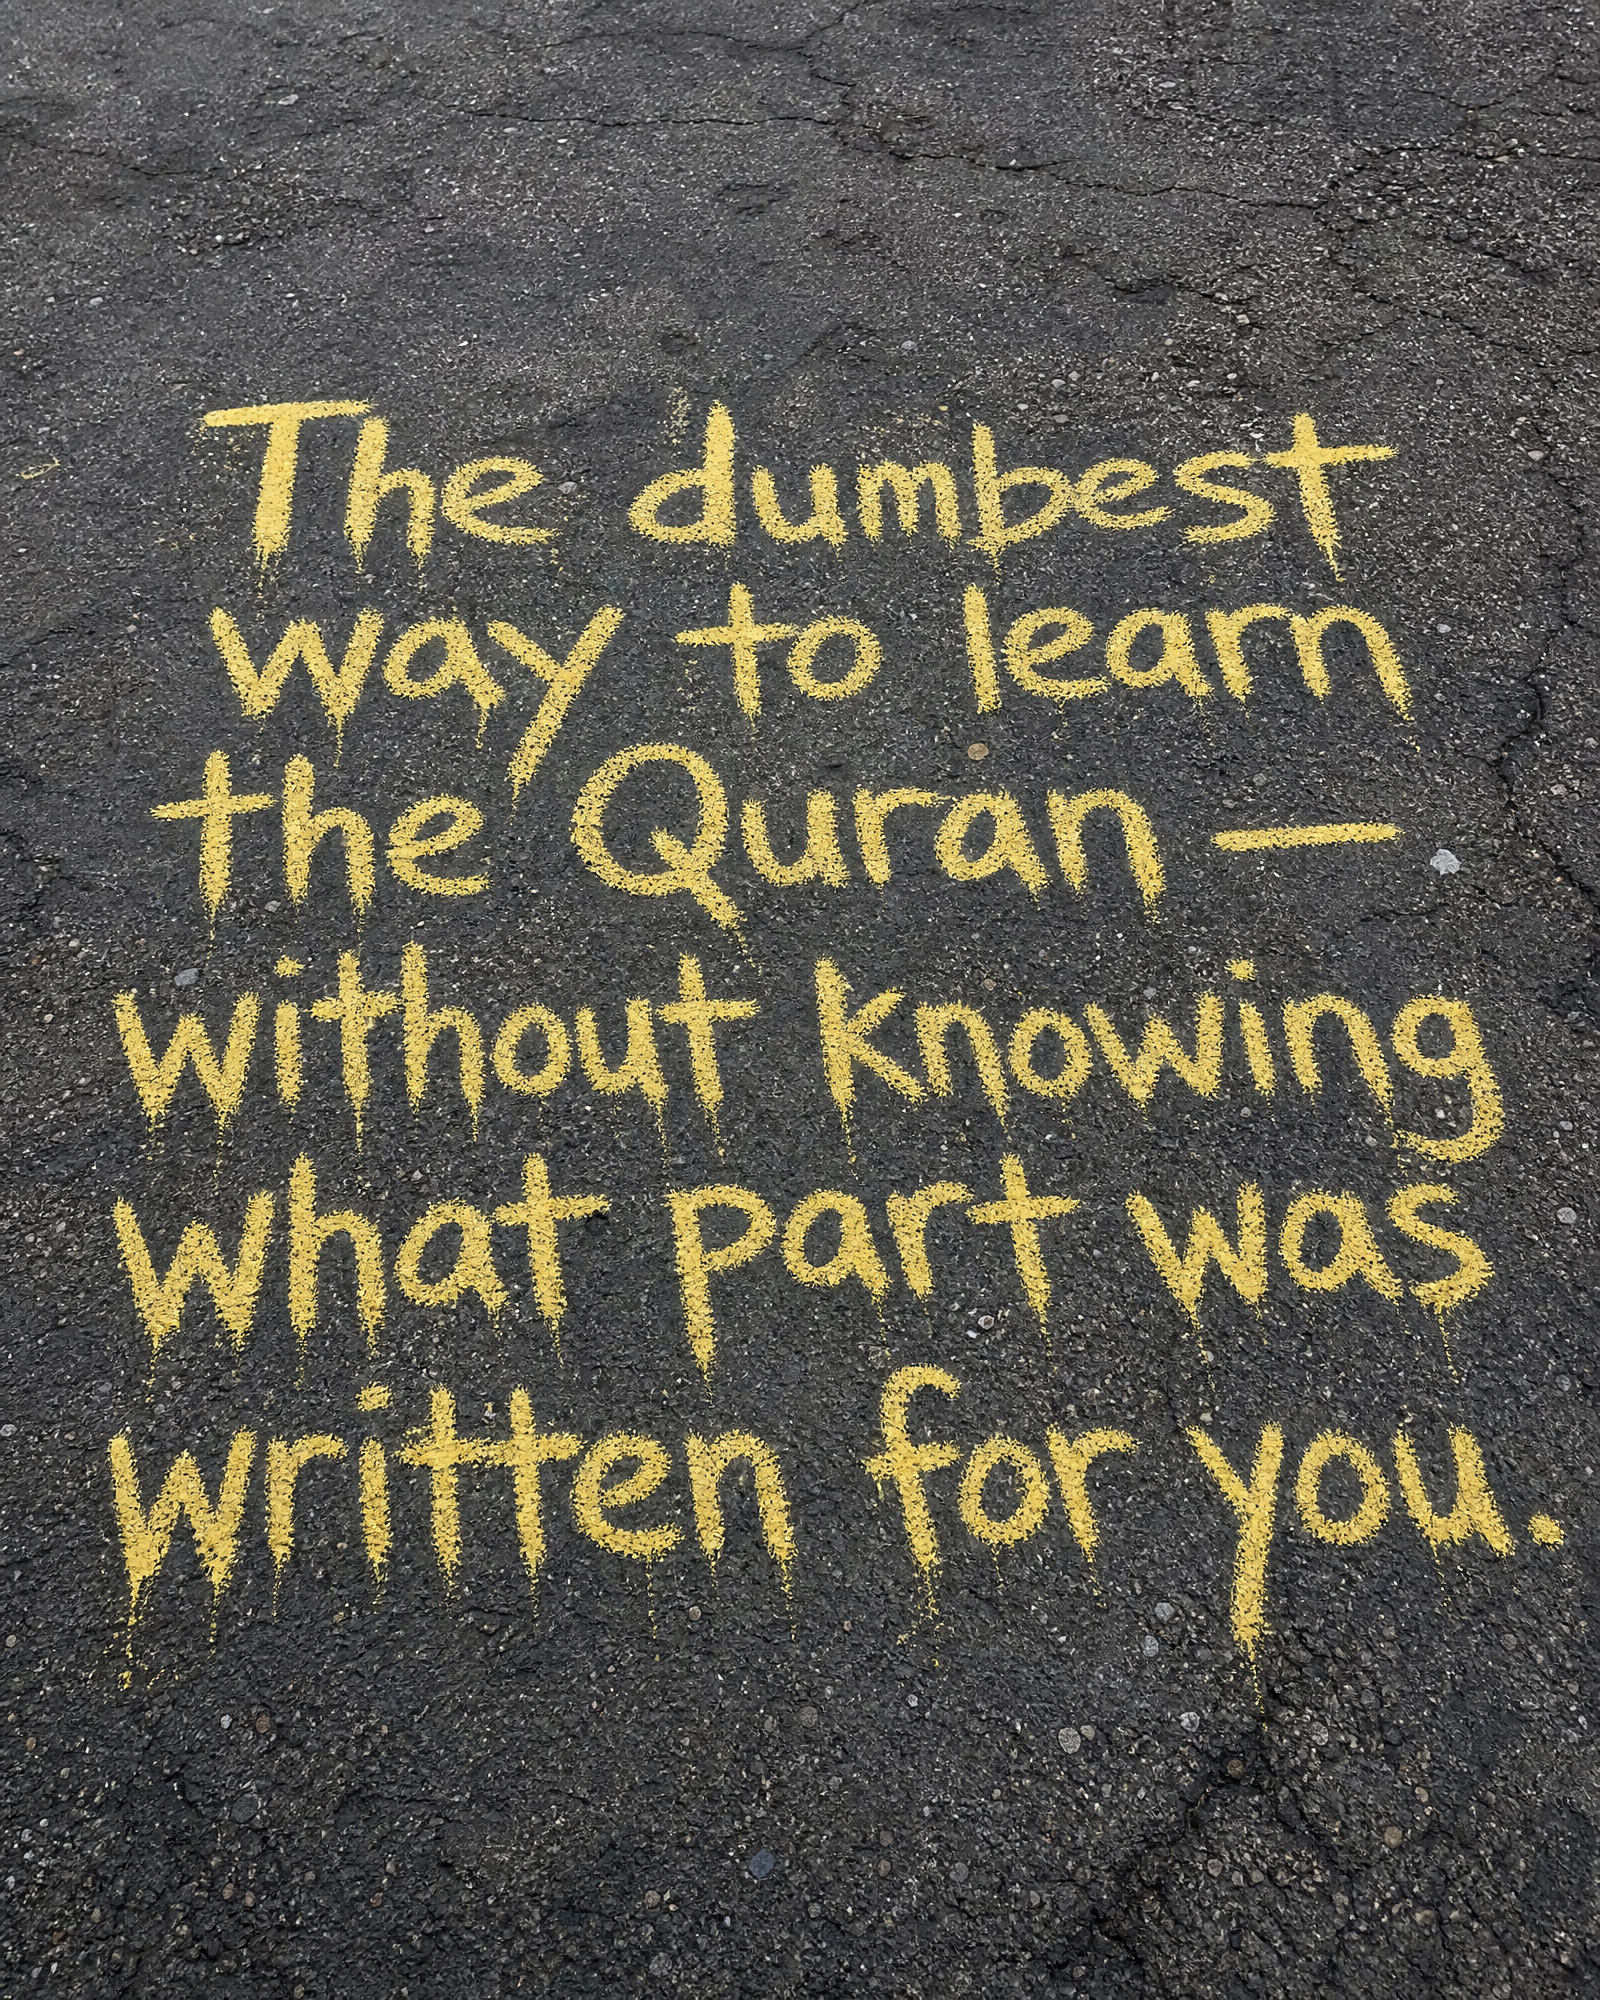 The dumbest
way to learn
the Quran —
without knowing
what part was
written for you.